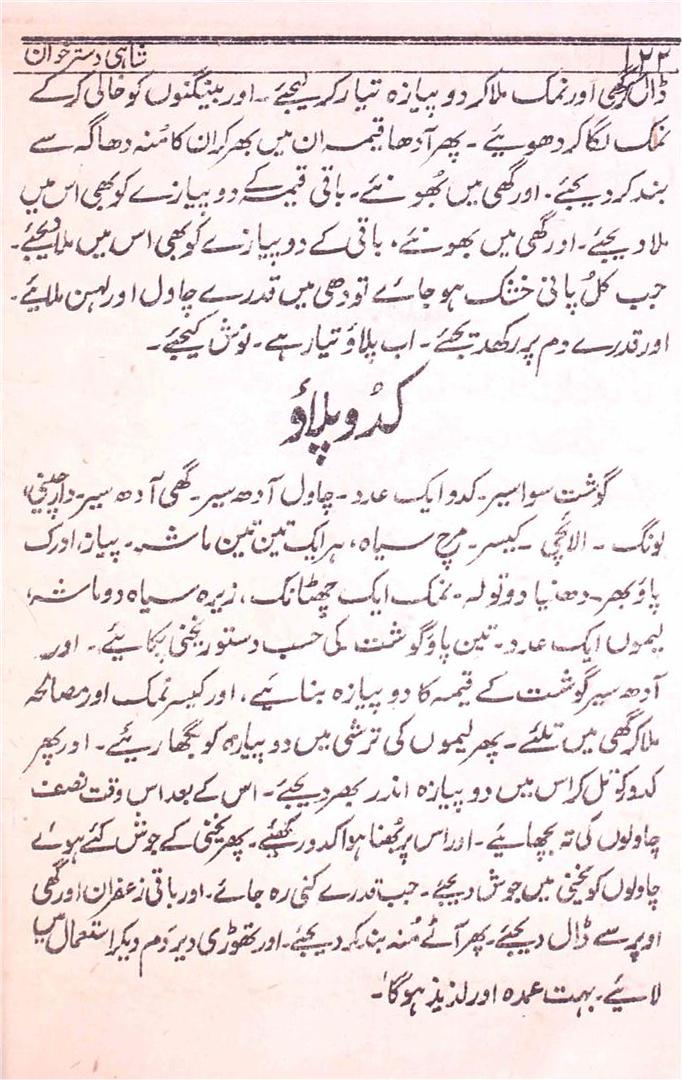 ۱۲۲ شاہی دسترخوان
ڈال کر گھی اور نمک ملا کر دو پیازہ تیار کر لیجئے ۔ اور بینگنوں کو خالی کر کے
نمک لگا کر دھوئیے ۔ پھر آدھا قیمہ ان میں بھر کر ان کا مُنہ دھاگہ سے
بند کر دیجئے ۔ اور گھی میں بھُونئے ۔ باقی قیمہ کے دو پیازے کو بھی اس میں
ملا دیجئے ۔ اور گھی میں بھونئے ، باقی کے دو پیازے کو بھی اس میں ملا دیجئے ۔
جب کُل پانی خشک ہو جائے تو دھی میں قدرے چاول اور لہسن ملائیے ۔
اور قدرے دم پر رکھ دیجئے ۔ اب پلاؤ تیار ہے ۔ نوش کیجئے ۔
کدُو پلاؤ
گوشت سوا سیر ۔ کدو ایک عدد ۔ چاول آدھ سیر ۔ گھی آدھ سیر ۔ دار چینی ،
لونگ ۔ الائچی ۔ کیسر ۔ مرچ سیاہ ، ہر ایک تین تین ماشہ ۔ پیاز ، ادرک
پاؤ بھر ۔ دھنیا دو تولہ ۔ نمک ایک چھٹانک ، زیرہ سیاہ دو ماشہ ،
لیموں ایک عدد ۔ تین پاؤ گوشت کی حسب دستور یخنی پکائیے ۔ اور
آدھ سیر گوشت کے قیمہ کا دو پیازہ بنائیے ، اور کیسر نمک اور مصالحہ
ملا کر گھی میں تلئے ۔ پھر لیموں کی ترشی میں دو پیازہ کو بگھاریئے ۔ اور پھر
کدو کو تل کر اس میں دو پیازہ اندر بھر دیجئے ۔ اس کے بعد اس وقت نصف
چاولوں کی تہ بچھائیے ۔ اور اس پر بھُنا ہوا کدو رکھیئے ۔ پھر یخنی کے جوش کئے ہوئے
چاولوں کو یخنی میں جوش دیجئے ۔ جب قدرے کنی رہ جائے ۔ اور باقی زعفران اور گھی
اوپر سے ڈال دیجئے ۔ پھر آٹے مُنہ بند کر دیجئے ۔ اور تھوڑی دیر دَم دیکر استعمال میں
لائیے ۔ بہت عمدہ اور لذیذ ہوگا ۔